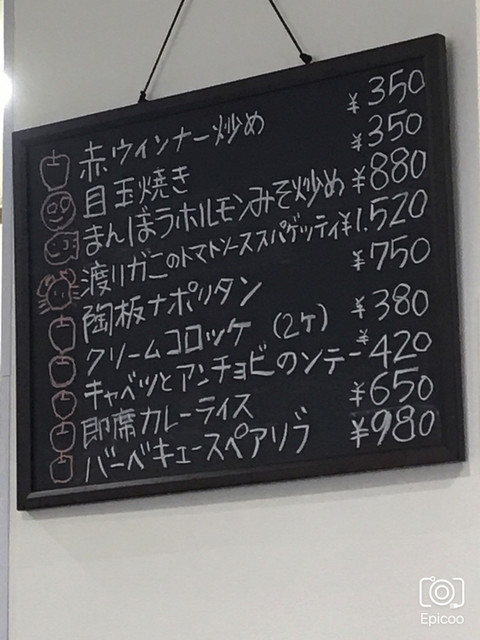 赤ウィンナー炒め ¥350
目玉焼き ¥350
まんぼうホルモンみそ炒め ¥880
渡りガニのトマトソーススパゲッティ ¥1.520
陶板ナポリタン ¥750
クリームコロッケ (2ケ) ¥380
キャベツとアンチョビのソテー ¥420
即席カレーライス ¥650
バーベキュースペアリブ ¥980
Epicoo